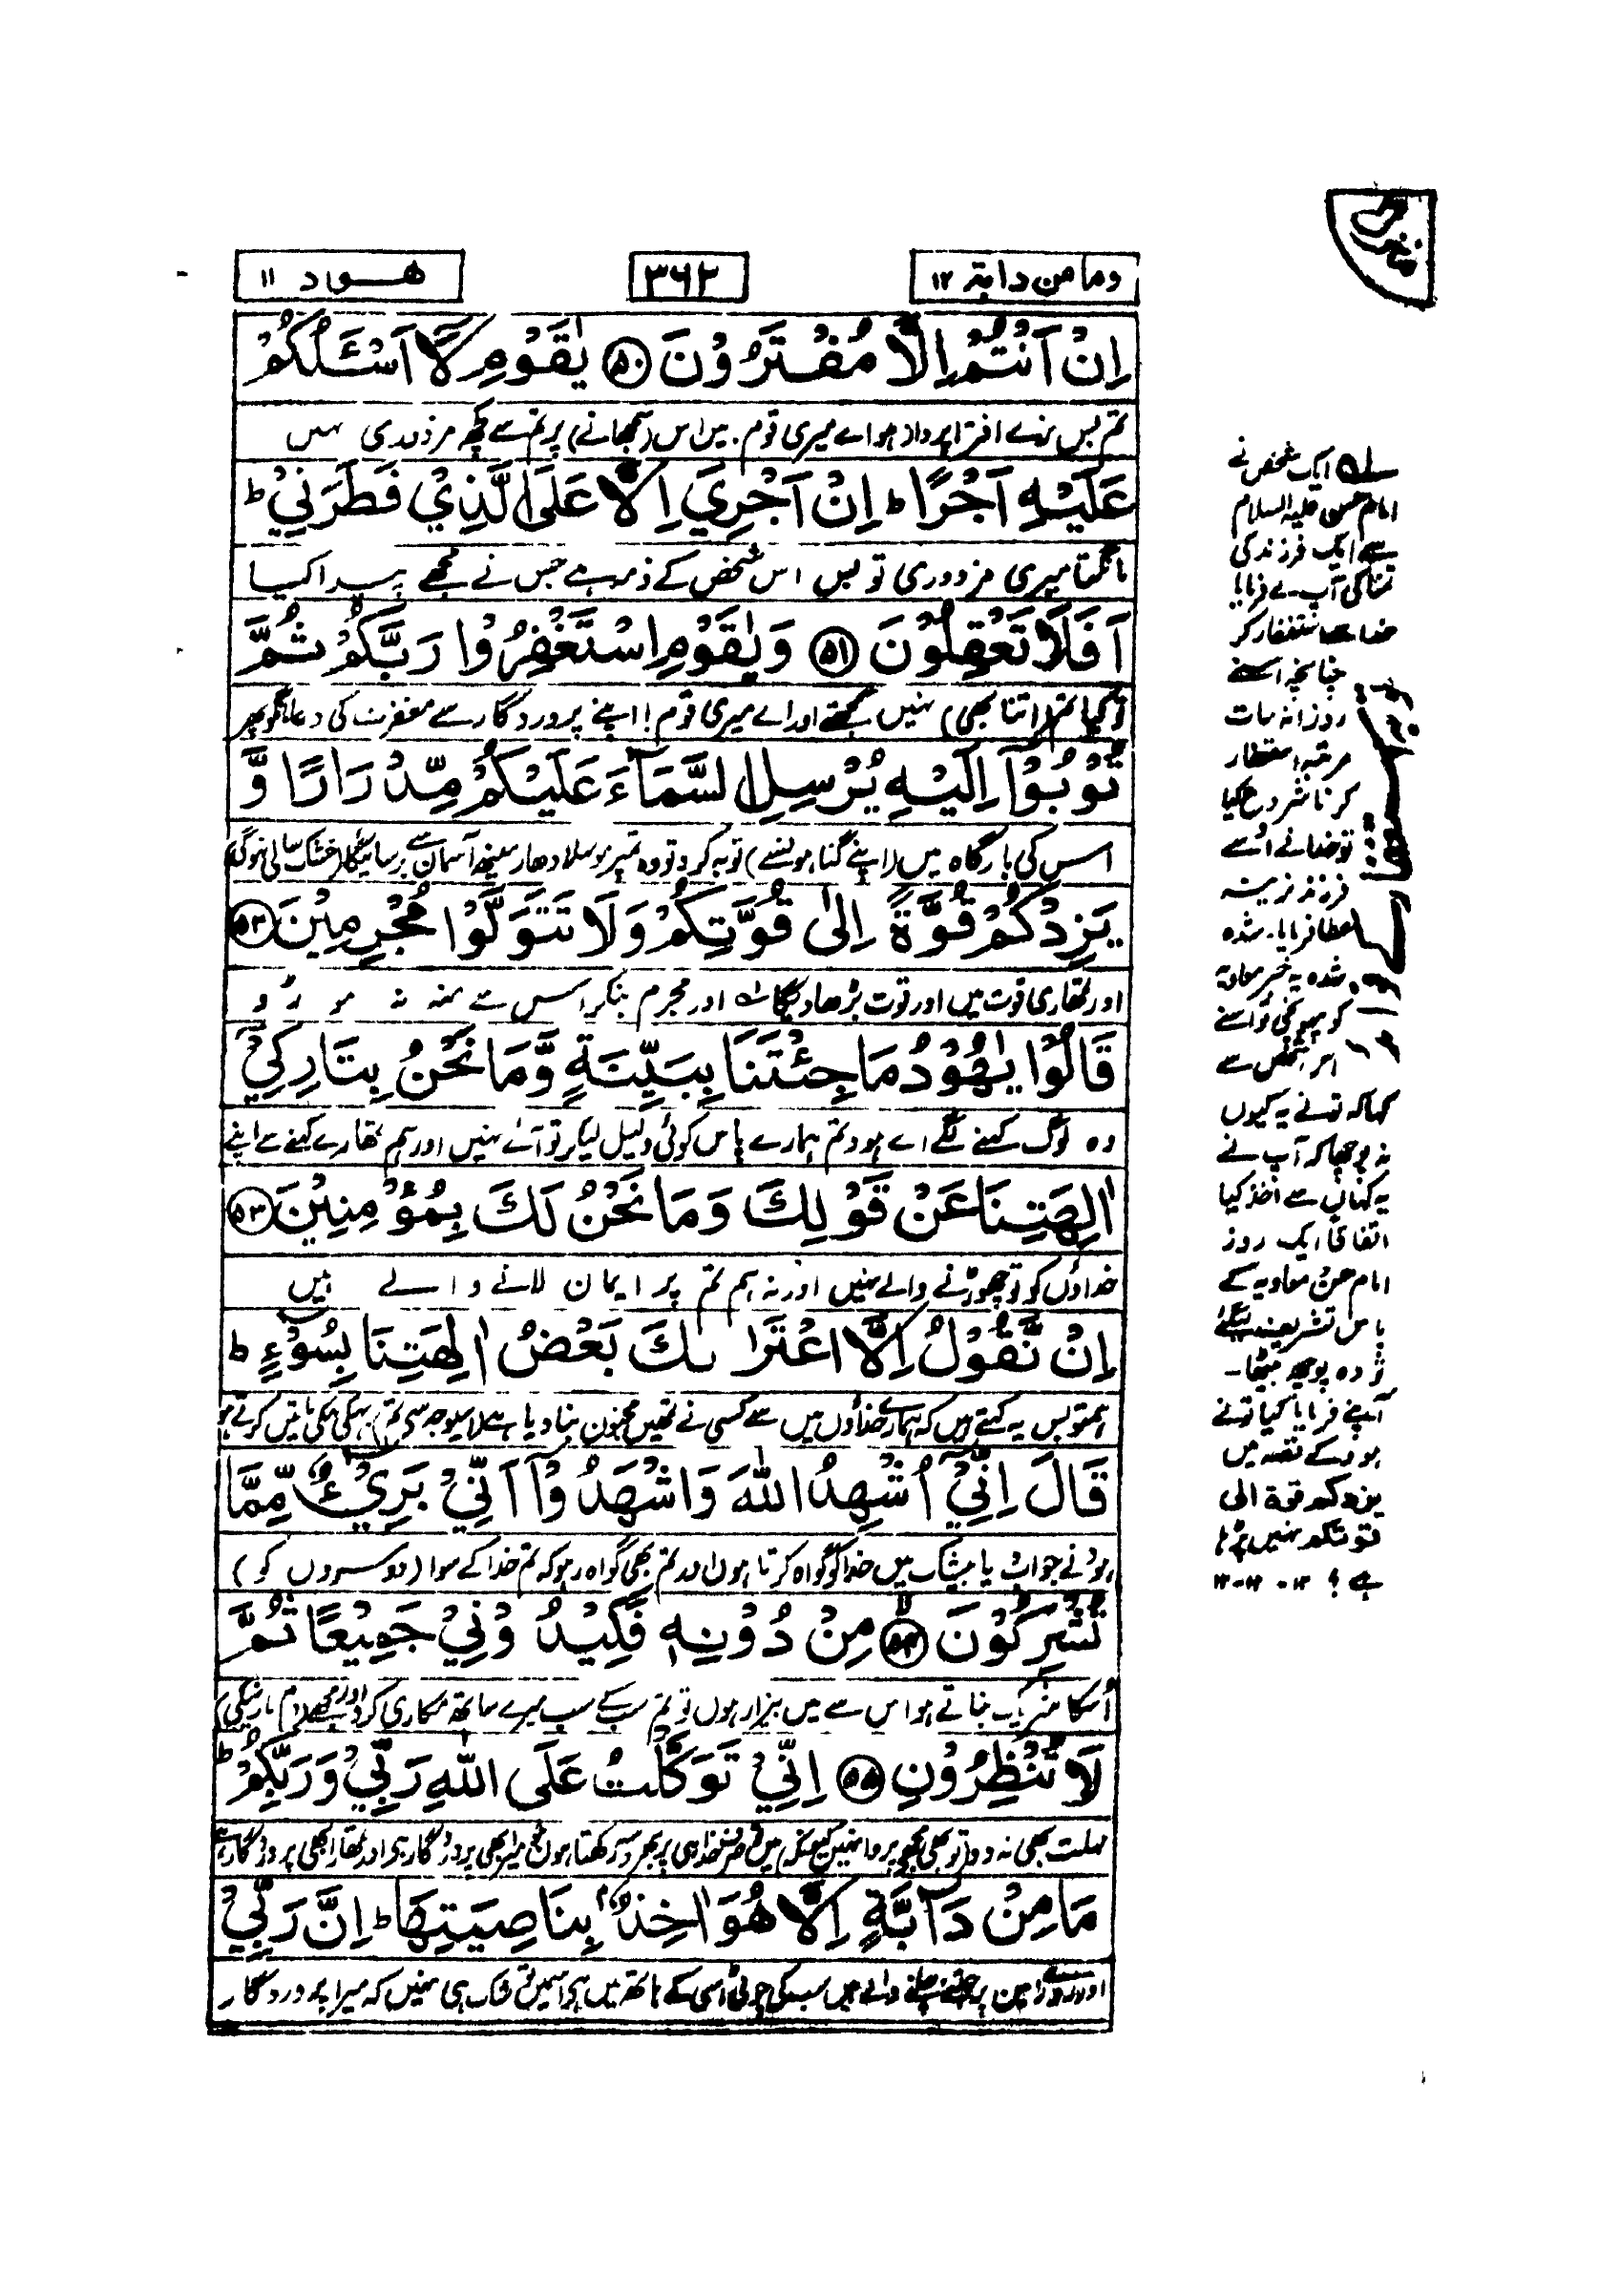 وما من دابۃ ۱۲
۳۶۲
ھود ۱۱
اِنْ اَنْتُمْ اِلَّا مُفْتَرُوْنَ ﴿۵۰﴾ یٰقَوْمِ لَاۤ اَسْـَٔلُكُمْ
تم بس نرے افترا پرداز ہو اے میری قوم۔ میں اس (سمجھانے) پر تم سے کچھ مزدوری نہیں
عَلَیْهِ اَجْرًا ؕ اِنْ اَجْرِیَ اِلَّا عَلَی الَّذِیْ فَطَرَنِیْ ؕ
مانگتا میری مزدوری تو بس اس شخص کے ذمہ ہے جس نے مجھے پیدا کیا
اَفَلَا تَعْقِلُوْنَ ﴿۵۱﴾ وَیٰقَوْمِ اسْتَغْفِرُوْا رَبَّكُمْ ثُمَّ
تو کیا تم (اتنا بھی) نہیں سمجھتے اور اے میری قوم! اپنے پروردگار سے مغفرت کی دعا مانگو پھر
تُوْبُوْۤا اِلَیْهِ یُرْسِلِ السَّمَآءَ عَلَیْكُمْ مِّدْرَارًا وَّ
اس کی بارگاہ میں (اپنے گناہوں سے) توبہ کرو تو وہ تمپر موسلا دھار مینھ آسمان سے برسائیگا (خشک سالی نہ ہوگی)
یَزِدْكُمْ قُوَّةً اِلٰی قُوَّتِكُمْ وَلَا تَتَوَلَّوْا مُجْرِمِیْنَ ﴿۵۲﴾
اور تمھاری قوت میں اور قوت بڑھا دیگا ۱؎ اور مجرم بنکر اس سے منہ نہ موڑو
قَالُوْا یٰهُوْدُ مَا جِئْتَنَا بِبَیِّنَةٍ وَّمَا نَحْنُ بِتَارِكِیْۤ
وہ لوگ کہنے لگے اے ہود تم ہمارے پاس کوئی دلیل لیکر تو آئے نہیں اور ہم تمھارے کہنے سے اپنے
اٰلِهَتِنَا عَنْ قَوْلِكَ وَمَا نَحْنُ لَكَ بِمُؤْمِنِیْنَ ﴿۵۳﴾
خداؤں کو تو چھوڑنے والے نہیں اور نہ ہم تم پر ایمان لانے والے ہیں
اِنْ نَّقُوْلُ اِلَّا اعْتَرٰىكَ بَعْضُ اٰلِهَتِنَا بِسُوْٓءٍ ؕ
ہم تو بس یہ کہتے ہیں کہ ہمارے خداؤں میں سے کسی نے تمھیں مجنون بنا دیا ہے (اسیوجہ سے تم) بہکی بہکی باتیں کرتے ہو
قَالَ اِنِّیْۤ اُشْهِدُ اللّٰهَ وَاشْهَدُوْۤا اَنِّیْ بَرِیْٓءٌ مِّمَّا
ہود نے جواب دیا بیشک میں خدا کو گواہ کرتا ہوں اور تم بھی گواہ رہو کہ تم خدا کے سوا (دوسروں کو)
تُشْرِكُوْنَ ﴿۵۴﴾ مِنْ دُوْنِهٖ فَكِیْدُوْنِیْ جَمِیْعًا ثُمَّ
اُسکا شریک بناتے ہو اس سے میں بیزار ہوں تو تم سب کے سب میرے ساتھ مکاری کرو اور مجھے
لَا تُنْظِرُوْنِ ﴿۵۵﴾ اِنِّیْ تَوَكَّلْتُ عَلَی اللّٰهِ رَبِّیْ وَرَبِّكُمْ ؕ
مہلت بھی نہ دو (تو بھی مجھے پروا نہیں) کیونکہ میں تو صرف خدا ہی پر بھروسہ رکھتا ہوں جو میرا بھی پروردگار ہے اور تمھارا بھی پروردگار ہے
مَا مِنْ دَآبَّةٍ اِلَّا هُوَ اٰخِذٌۢ بِنَاصِیَتِهَا ؕ اِنَّ رَبِّیْ
اور روئے زمین پر جتنے چلنے والے ہیں سب کی چوٹی اسی کے ہاتھ میں ہے اسمیں تو شک ہی نہیں کہ میرا پروردگار
۱؎ ایک شخص نے
امام حسن علیہ السلام
سے ایک فرزند کی
تمنا کی آپ نے فرمایا
خدا سے استغفار کر
چنانچہ اسنے
روزانہ سات
مرتبہ استغفار
کرنا شروع کیا
تو خدا نے اُسے
فرزند نرینہ
عطا فرمایا۔ شدہ
شدہ یہ خبر معاویہ
کو پہونچی تو اسنے
اس شخص سے
کہا کہ تونے یہ کیوں
نہ پوچھا کہ آپ نے
یہ کہاں سے اخذ کیا
اتفاقاً ایک روز
امام حسنؑ معاویہ کے
پاس تشریف لیگئے
تو وہ پوچھ بیٹھا۔
آپنے فرمایا کیا تونے
ہود کے قصہ میں
یزدکم قوۃ الی
قوتکم نہیں پڑھا
ہے؟ ۱۲۔۱۲۔۱۲